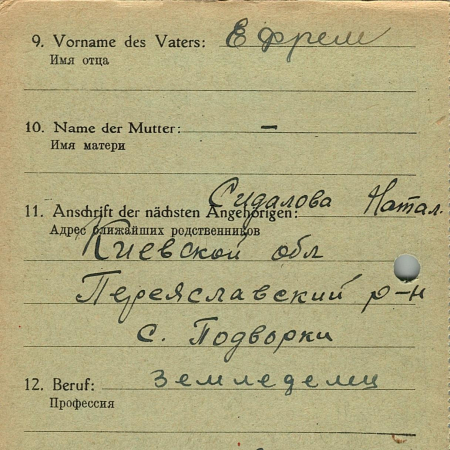 9. Vorname des Vaters: Ефрем
Имя отца
10. Name der Mutter: –
Имя матери
Сидалова Натал.
11. Anschrift der nächsten Angehörigen:
Адрес ближайших родственников
Киевской обл
Переяславский р-н
с. Подворки
12. Beruf: Земледелец
Профессия